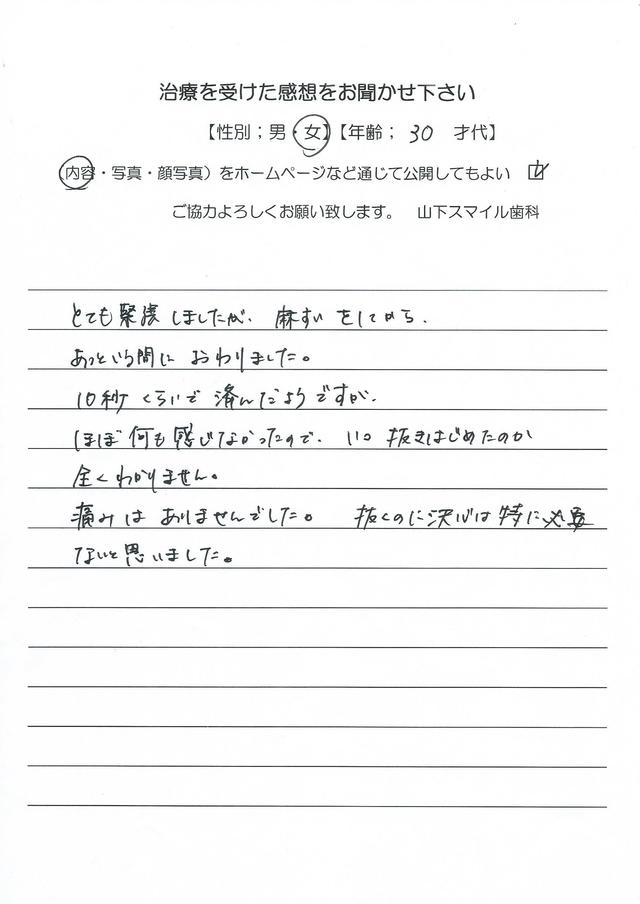 治療を受けた感想をお聞かせ下さい
【性別；男・女】【年齢； 30 才代】
（内容・写真・顔写真）をホームページなど通じて公開してもよい ☑
ご協力よろしくお願い致します。 山下スマイル歯科
とても緊張しましたが、麻すいをしてから、
あっという間におわりました。
10秒くらいで済んだようですが、
ほぼ何も感じなかったので、いつ抜きはじめたのか
全くわかりません。
痛みはありませんでした。 抜くのに決心は特に必要
ないと思いました。